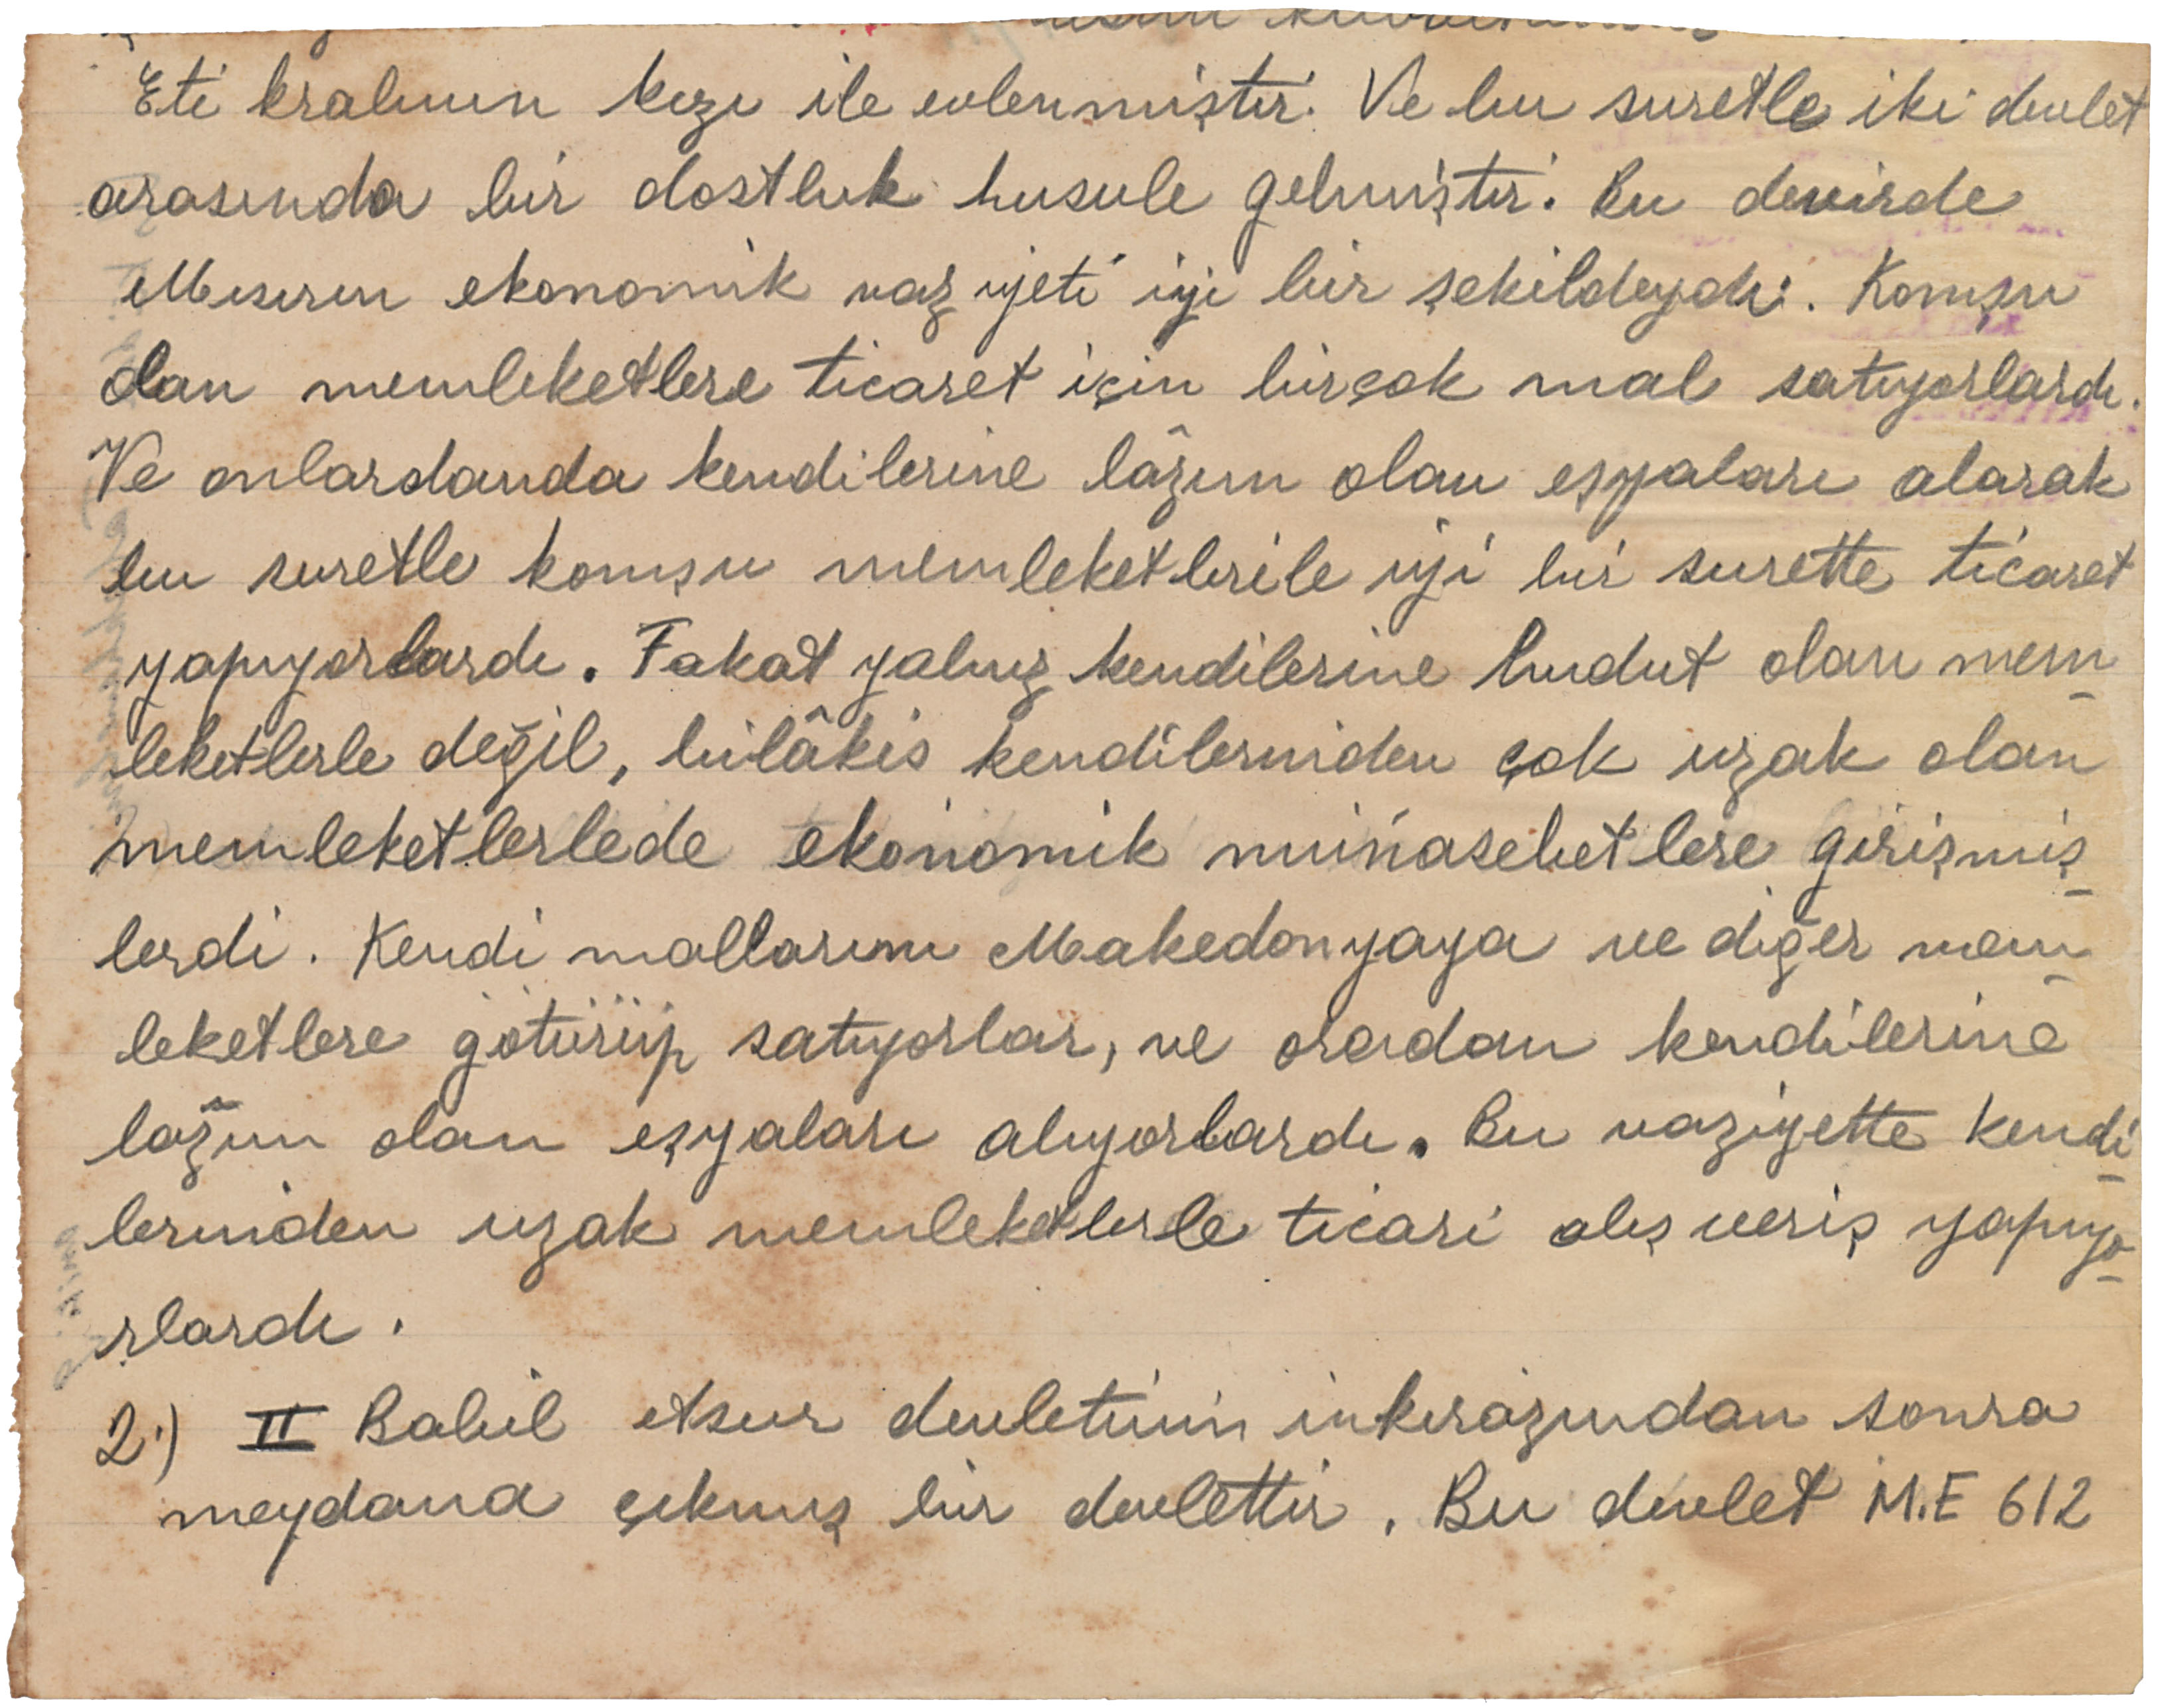 Eti kralının kızı ile evlenmiştir. Ve bu suretle iki devlet
arasında bir dostluk husule gelmiştir. Bu devirde
Mısırın ekonomik vaziyeti iyi bir şekildeydi. Komşu
olan memleketlere ticaret için birçok mal satıyorlardı.
Ve onlardanda kendilerine lâzım olan eşyaları alarak
bu suretle komşu memleketlerile iyi bir surette ticaret
yapıyorlardı. Fakat yalnız kendilerine hudut olan mem-
leketlerle değil, bilâkis kendilerinden çok uzak olan
memleketlerlede ekonomik münasebetlere girişmiş-
lerdi. Kendi mallarını Makedonyaya ve diğer mem-
leketlere götürüp satıyorlar, ve oradan kendilerine
lâzım olan eşyaları alıyorlardı. Bu vaziyette kendi-
lerinden uzak memleketlerle ticari alış veriş yapıyo-
rlardı.
2.) II Babil Asur devletinin inkırazından sonra
meydana çıkmış bir devlettir. Bu devlet M.E 612